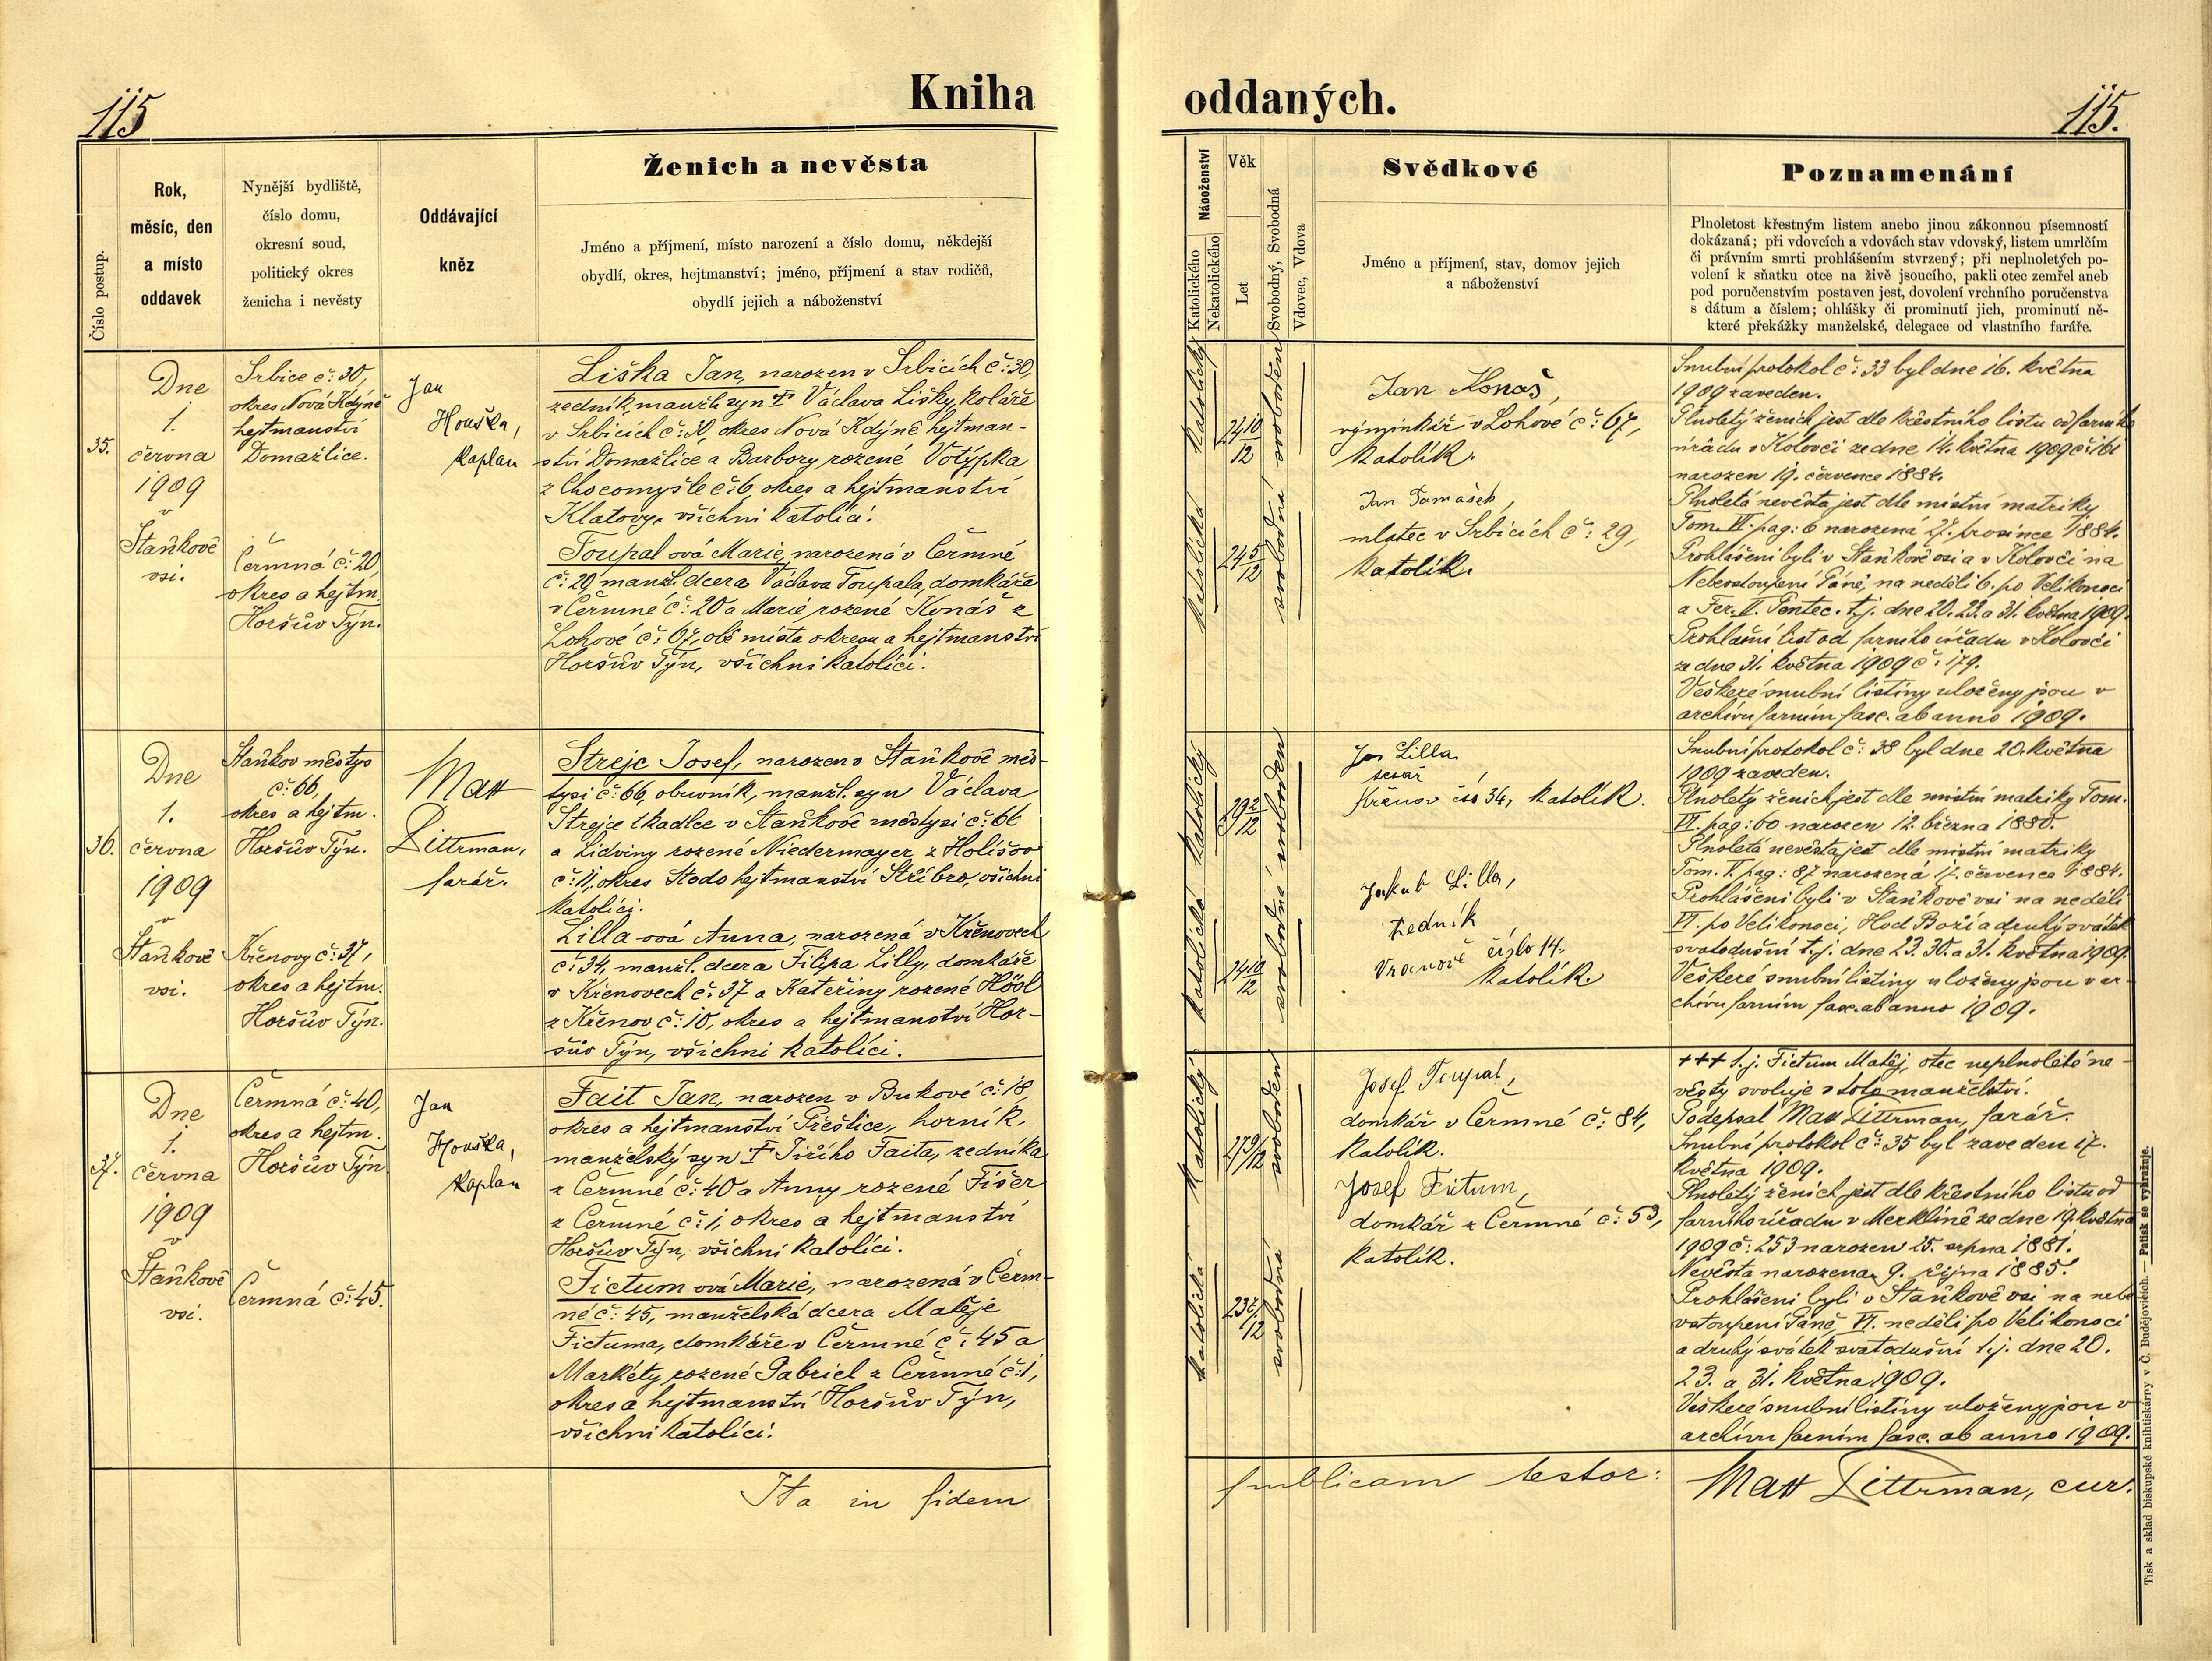 115
Kniha
oddaných.
115.
Číslo postup.
Rok,
měsíc, den
a místo
oddavek
Nynější bydliště,
číslo domu,
okresní soud,
politický okres
ženicha i nevěsty
Oddávající
kněz
Ženich a nevěsta
Jméno a příjmení, místo narození a číslo domu, někdejší
obydlí, okres, hejtmanství; jméno, příjmení a stav rodičů,
obydlí jejich a náboženství
Náboženství
Katolického
Nekatolického
Věk
Let
Svobodný, Svobodná
Vdovec, Vdova
Svědkové
Jméno a příjmení, stav, domov jejich
a náboženství
Poznamenání
Plnoletost křestným listem anebo jinou zákonnou písemností
dokázaná; při vdovcích a vdovách stav vdovský, listem umrlčím
či právním smrti prohlášením stvrzený; při neplnoletých po-
volení k sňatku otce na živě jsoucího, pakli otec zemřel aneb
pod poručenstvím postaven jest, dovolení vrchního poručenstva
s dátum a číslem; ohlášky či prominutí jich, prominutí ně-
které překážky manželské, delegace od vlastního faráře.
35.
Dne
1.
června
1909
v
Staňkově
vsi.
Srbice č: 30,
okres Nová Kdýně
hejtmanství
Domažlice.
Čermná č: 20,
okres a hejtm.
Horšův Týn.
Jan
Houška,
kaplan
Liška Jan, narozen v Srbicích č: 30,
zedník, manžl. syn † Václava Lišky, koláře
v Srbicích č: 30, okres Nová Kdýně hejtman-
ství Domažlice a Barbory rozené Votýpka
z Chocomyšle č: 6, okres a hejtmanství
Klatovy, všichni katolíci.
Toupal ová Marie, narozená v Čermné
č: 20 manžl. dcera Václava Toupala, domkáře
v Čermné č: 20 a Marie rozené Konáš z
Lohové č: 67, obě místa okresu a hejtmanství
Horšův Týn, všichni katolíci.
katolický
24 10/12
svoboden
katolická
24 5/12
svobodná
Jan Konaš,
výminkář v Lohové č: 67,
katolík.
Jan Tomášek,
mlatec v Srbicích č: 29,
katolík.
Snubní protokol č: 33 byl dne 16. května
1909 zaveden.
Plnoletý ženich jest dle křestního listu od farního
úřadu v Kolovči ze dne 14. května 1909 č: 161
narozen 19. července 1884.
Plnoletá nevěsta jest dle místní matriky
Tom. VI. pag: 6 narozená 27. prosince 1884.
Prohlášeni byli v Staňkově vsi a v Kolovči na
Nebevstoupení Páně, na neděli 6. po Velikonoci
a Fer. II. Pentec. t.j. dne 20. 23. a 31. května 1909.
Prohlašní list od farního úřadu v Kolovči
ze dne 31. května 1909 č: 179.
Veškeré snubní listiny uloženy jsou v
archivu farním fasc. ab anno 1909.
36.
Dne
1.
června
1909
v
Staňkově
vsi.
Staňkov městys
č: 66,
okres a hejtm.
Horšův Týn.
Křenovy č: 37,
okres a hejtm.
Horšův Týn.
Matt
Dittrman,
farář.
Strejc Josef, narozen v Staňkově měs-
tysi č: 66, obuvník, manžl. syn Václava
Strejce tkadlce v Staňkově městysi č: 66
a Lidviny rozené Niedermayer z Holišov
č: 11, okres Stodo hejtmanství Stříbro, všichni
katolíci.
Lilla ová Anna, narozená v Křenovech
č: 34, manžl. dcera Filipa Lilly, domkáře
v Křenovech č: 37 a Kateřiny rozené Hösl
z Křenov č: 10, okres a hejtmanství Hor-
šův Týn, všichni katolíci.
katolický
29 2/12
svoboden
katolická
24 10/12
svobodná
Jan Lilla
tesař
Křenov čís 34, katolík.
Jakub Lilla,
zedník
Vranově číslo 14.
katolík.
Snubní protokol č: 38 byl dne 20. května
1909 zaveden.
Plnoletý ženich jest dle místní matriky Tom.
VI. pag: 60 narozen 12. března 1880.
Plnoletá nevěsta jest dle místní matriky
Tom. V. pag: 87 narozená 17. července 1884.
Prohlášeni byli v Staňkově vsi na neděli
VI. po Velikonoci, Hod Boží a druhý svátek
svatodušní t.j. dne 23. 30. a 31. května 1909.
Veškeré snubní listiny uloženy jsou v ar-
chivu farním fasc. ab anno 1909.
37.
Dne
1.
června
1909
v
Staňkově
vsi.
Čermná č: 40,
okres a hejtm.
Horšův Týn
Čermná č: 45.
Jan
Houška,
kaplan
Fait Jan, narozen v Bukové č: 18,
okres a hejtmanství Přeštice, horník,
manželský syn † Jiřího Faita, zedníka
z Čermné č: 40 a Anny rozené Fišer
z Čermné č: 1, okres a hejtmanství
Horšův Týn, všichni katolíci.
Fictum ová Marie, narozená v Čerm-
né č: 45, manželská dcera Matěje
Fictuma, domkáře v Čermné č: 45 a
Markéty rozené Gabriel z Čermné č: 1,
okres a hejtmanství Horšův Týn,
všichni katolíci.
katolický
27 9/12
svoboden
katolická
svobodná
Josef Toupal,
domkář v Čermné č: 84,
katolík.
Josef Fictum,
domkář z Čermné č: 53,
katolík.
+++ t.j. Fictum Matěj, otec neplnoleté ne-
věsty svoluje v toto manželství.
Podepsal Matt Dittrman, farář.
Snubní protokol č: 35 byl zaveden 17.
května 1909.
Plnoletý ženich jest dle křestního listu od
farního úřadu v Merklíně ze dne 19. května
1909 č: 253 narozen 25. srpna 1881.
Nevěsta narozena 9. října 1885.
Prohlášeni byli v Staňkově vsi na nebe
vstoupení Páně, VI. neděli po Velikonoci
a druhý svátek svatodušní t.j. dne 20.
23. a 31. května 1909.
Veškeré snubní listiny uloženy jsou v
archivu farním fasc. ab anno 1909.
Ita in fidem
publicam testor:
Matt Dittrman, cur.
Tisk a sklad biskupské knihtiskárny v Č. Budějovicích. — Patisk se vyhražuje.